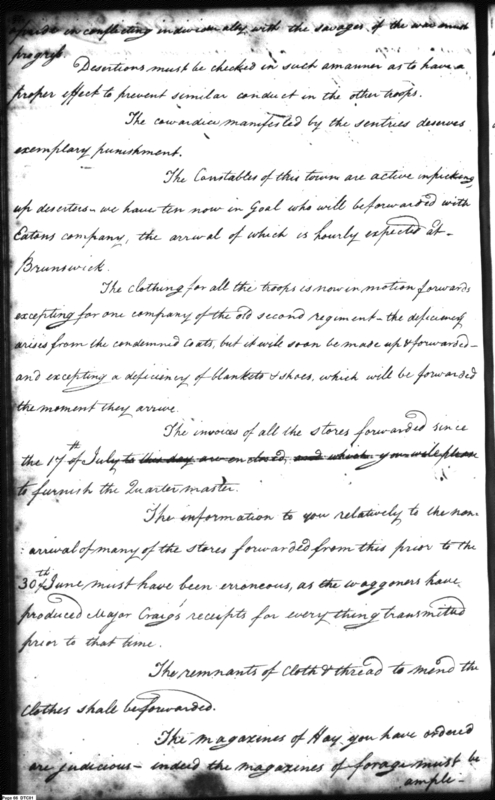 in conflicting individually with the savages, if the war must
progress.
Desertions must be checked in such a manner as to have a
proper effect to prevent similar conduct in the other troops.
The cowardice manifested by the sentries deserves
exemplary punishment.
The Constables of this town are active in picking
up deserters - we have ten now in Goal who will be forwarded with
Eatons company, the arrival of which is hourly expected at -
Brunswick.
The clothing for all the troops is now in motion forwards
excepting for one company of the old second regiment - the deficiency
arises from the condemned Coats, but it will soon be made up & forwarded -
and excepting a deficiency of blankets & shoes, which will be forwarded
the moment they arrive.
The invoices of all the stores forwarded since
the 17th of July to this day are enclosed, and which you will please
to furnish the Quarter master.
The information to you relatively to the non-
:arrival of many of the stores forwarded from this prior to the
30th of June must have been erroneous, as the waggoners have
produced Major Craig's receipts for every thing transmitted
prior to that time.
The remnants of Cloth & thread to mend the
Clothes shall be forwarded.
The magazines of Hay you have ordered
are judicious - indeed the magazines of forage must be
ample -
Page 66 DTC01